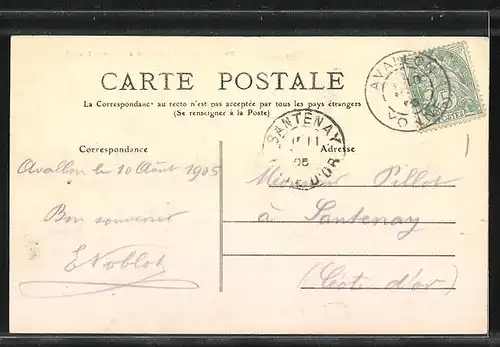 CARTE POSTALE
La Correspondance au recto n'est pas acceptée par tous les pays étrangers
(Se renseigner à la Poste)
Correspondance
Adresse
AVALLON
5
SANTENAY
05
CÔTE D'OR
Avallon le 10 Août 1905
Bon souvenir
E Noblot
Pillot
à Santenay
(Côte d'or)